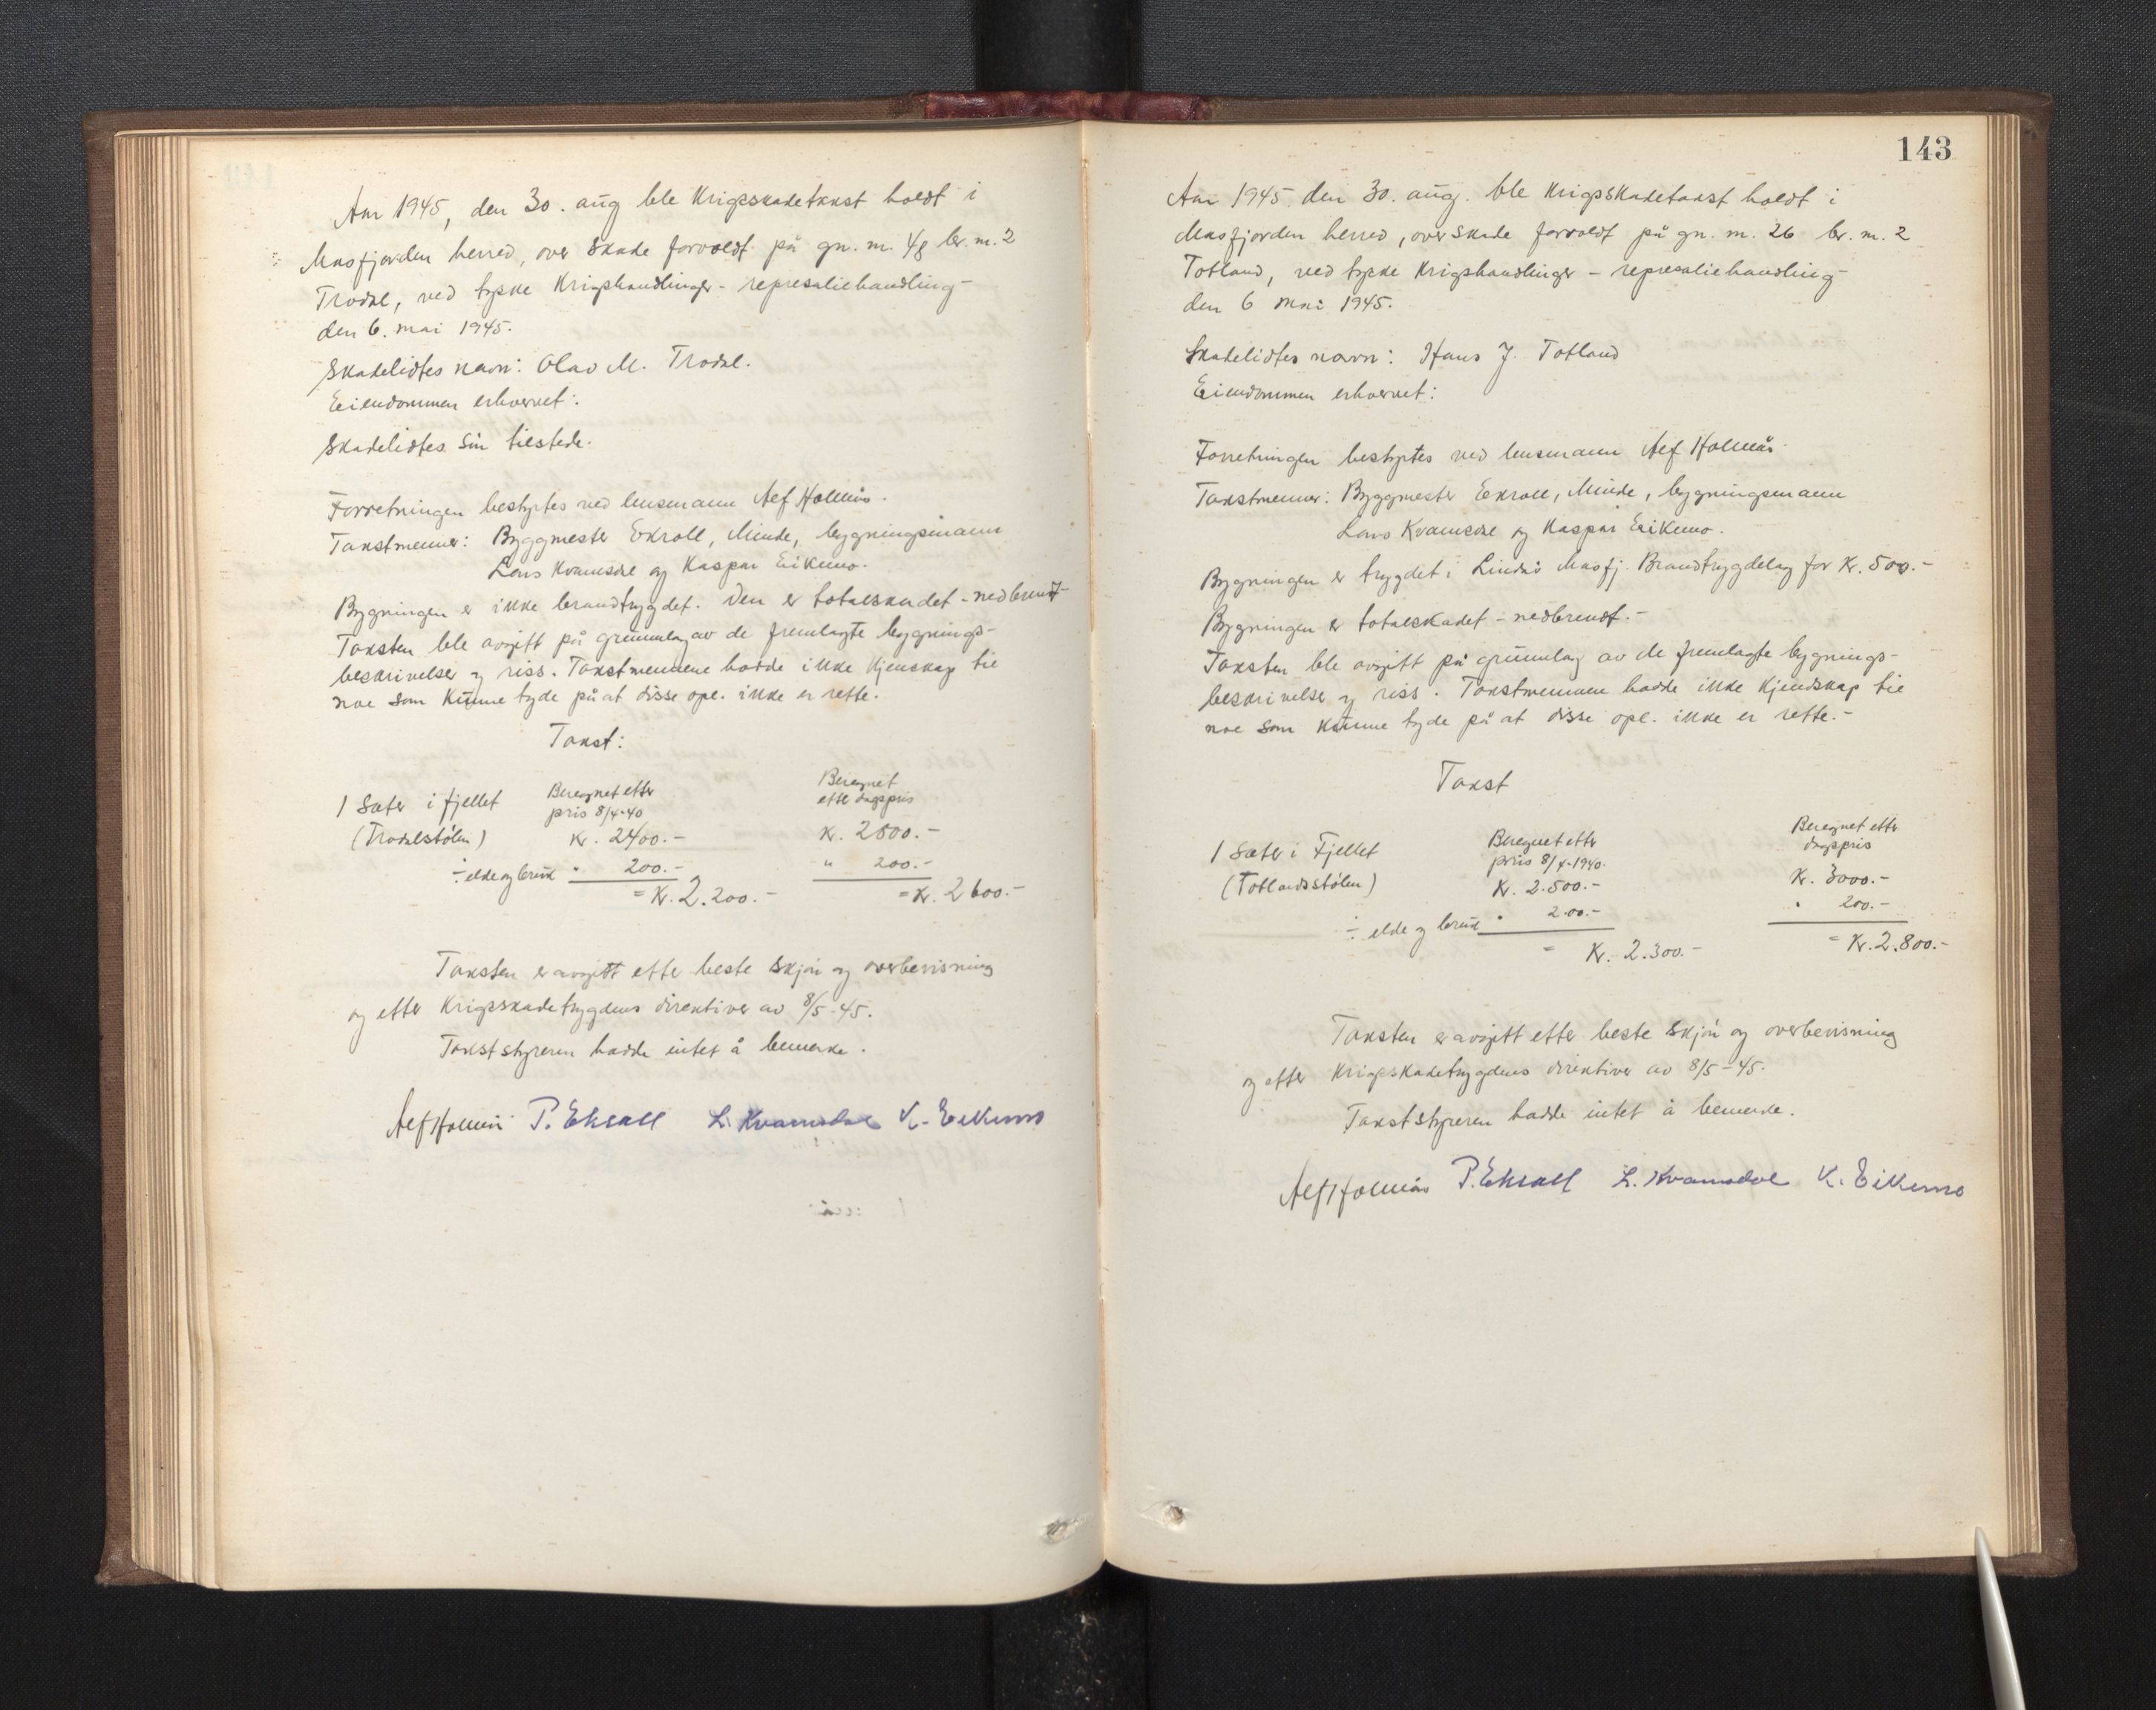 Aar 1945, den 30. aug ble Krigsskadetakst holdt i
Masfjorden herred, over skade forvoldt på gn. m. 48 br. m. 2
Trodal, ved tyske Krigshandlinger - represaliehandling -
den 6. mai 1945.
Skadelidtes navn: Olav M. Trodal.
Eiendommen erhvervet:
Skadelidtes sin tilstede.
Forretningen bestyrtes ved lensmann Alf Holmås.
Takstmenner: Byggmester Ekroll, Minde, bygningsmann
Lars Kvamsdal og Kaspar Eikemo.
Bygningen er ikke brandtrygdet. Den er totalskadet - nedbrendt
Taksten ble avgitt på grunnlag av de fremlagte bygnings-
beskrivelser og riss. Takstmennene hadde ikke kjenskap til
noe som kunne tyde på at disse opl. ikke er rette.
Takst:
1 Sæter i fjellet
(Trodalstølen)
Beregnet etter
pris 8/4-40
Kr. 2400.-
Beregnet
ette dagspris
Kr. 2800.-
÷ elde og bruk " 200.- " 200.-
= Kr. 2.200.- = Kr. 2600.-
Taksten er avgitt etter beste skjøn og overbevisning
og etter Krigsskadetrygdens direktiver av 8/5-45.
Takststyreren hadde intet å bemerke.
Alf Holmås P. Ekroll L. Kvamsdal K. Eikemo
143
Aar 1945. den 30. aug. ble Krigsskadetakst holdt i
Masfjorden herred, over skade forvoldt på gn. m. 26 br. m. 2
Totland, ved tyske Krigshandlinger - represaliehandling -
den 6 mai 1945.
Skadelidtes navn: Hans J. Totland
Eiendommen erhvervet:
Forretningen bestyrtes ved lensmann Alf Holmås.
Takstmenner: Byggmester Ekroll, Minde, bygningsmann
Lars Kvamsdal og Kaspar Eikemo.
Bygningen er trygdet i Lindås Masfj. Brandtrygdelag for Kr. 500.-
Bygningen er totalskadet - nedbrendt.-
Taksten ble avgitt på grunnlag av de fremlagte bygnings-
beskrivelse og riss. Takstmennene hadde ikke kjendskap til
noe som kunne tyde på at disse opl. ikke er rette.-
Takst
1 Sæter i Fjellet
(Totlandsstølen)
Beregnet etter
pris 8/4-1940.
Kr. 2.500.-
Beregnet etter
dagspris
Kr. 3000.-
÷ elde og bruk " 200.- " 200.-
= Kr. 2.300.- = Kr. 2.800.-
Taksten er avgitt etter beste skjøn og overbevisning
og etter Krigsskadetrygdens direktiver av 8/5-45.
Takststyreren hadde intet å bemerke.
Alf Holmås P. Ekroll L. Kvamsdal K. Eikemo